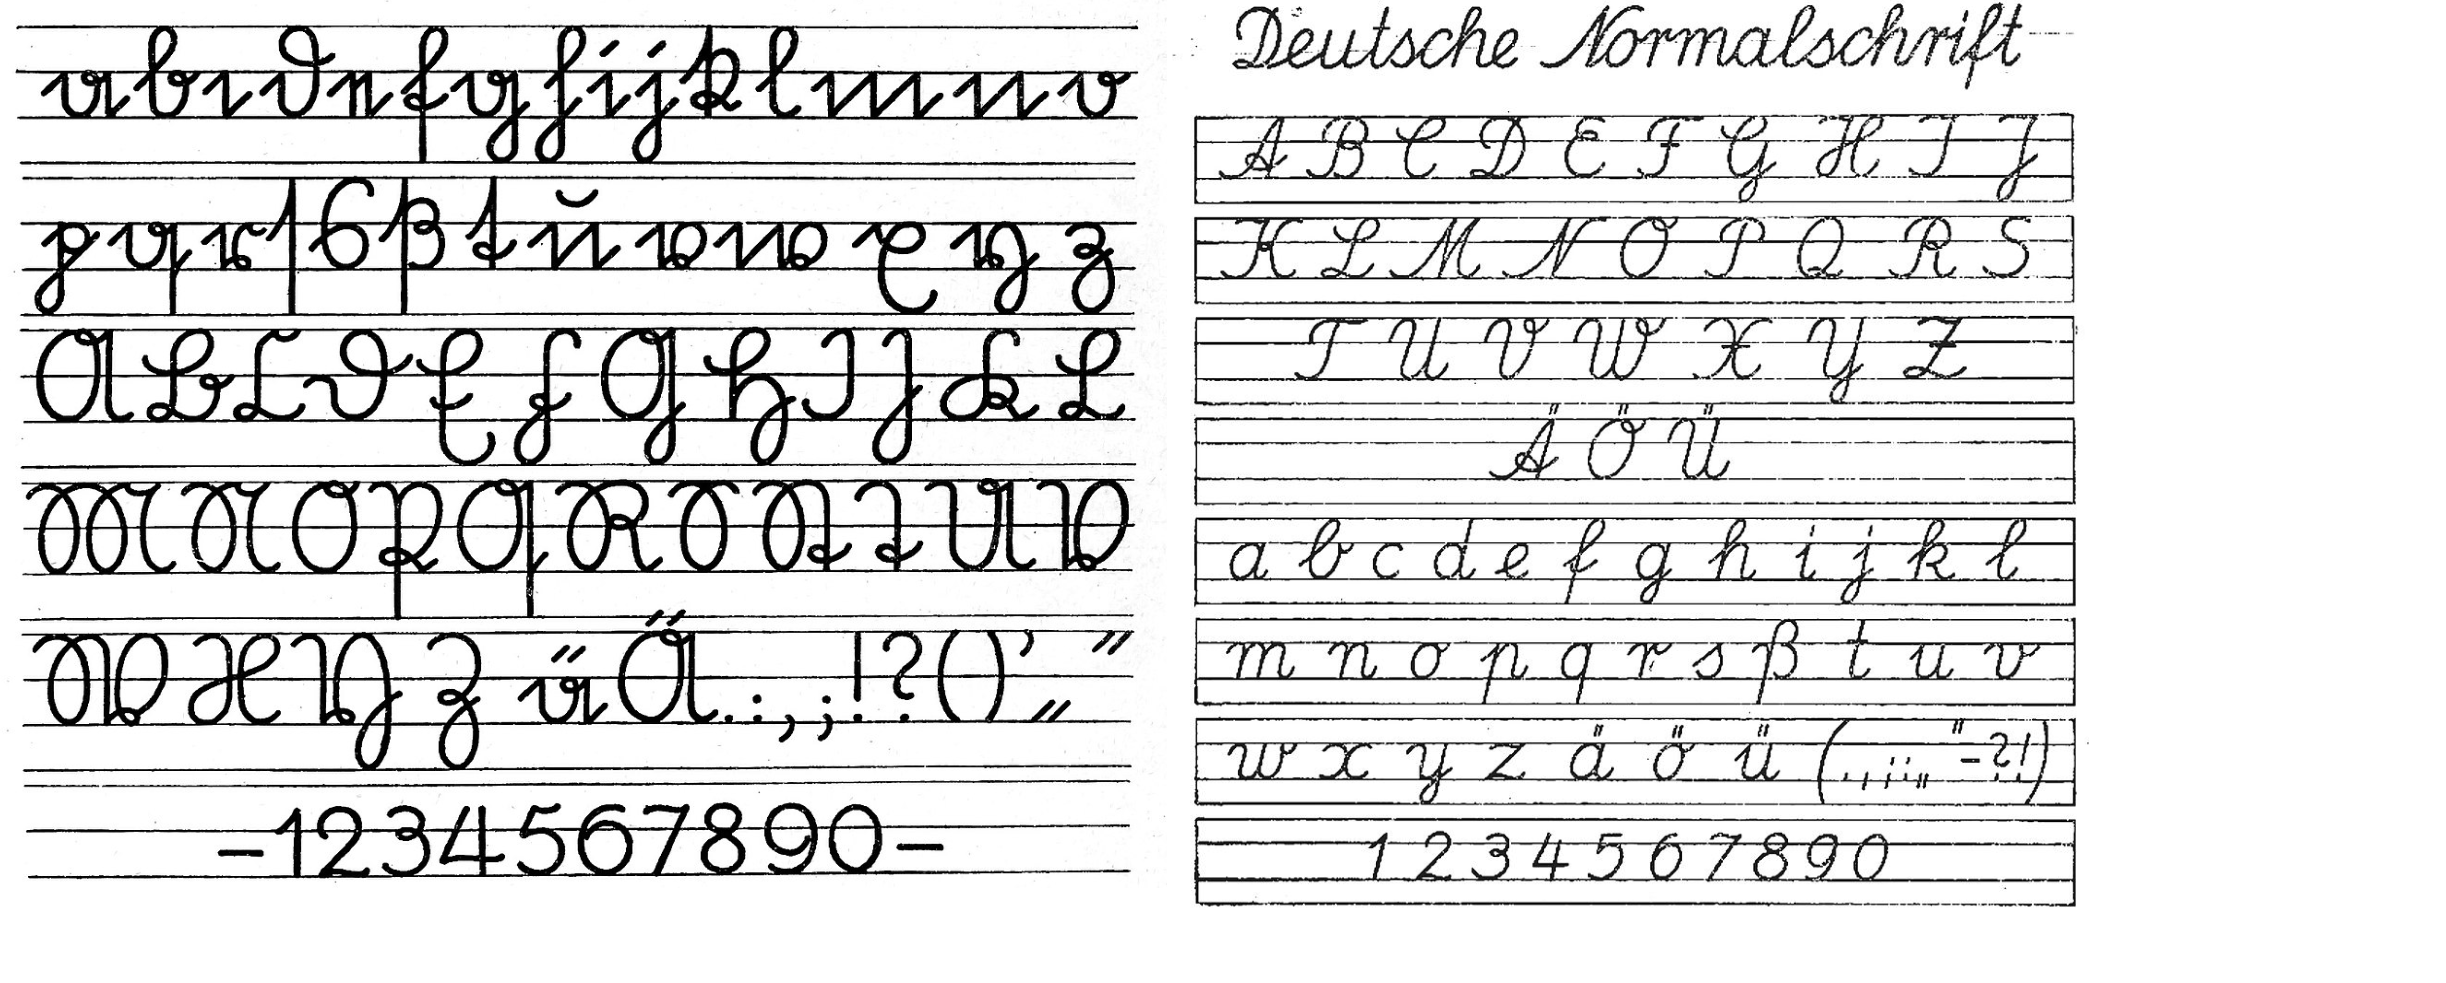 a b c d e f g h i j k l m n o
p q r ſ s ß t u v w x y z
A B C D E F G H I J K L
M N O P Q R S St T U V
W X Y Z ä Ä . : , ; ! ? ( ) ’ „ “
-1234567890-
Deutsche Normalschrift
A B C D E F G H I J
K L M N O P Q R S
T U V W X Y Z
Ä Ö Ü
a b c d e f g h i j k l
m n o p q r s ß t u v
w x y z ä ö ü (. , ; : „ “ - ? !)
1 2 3 4 5 6 7 8 9 0